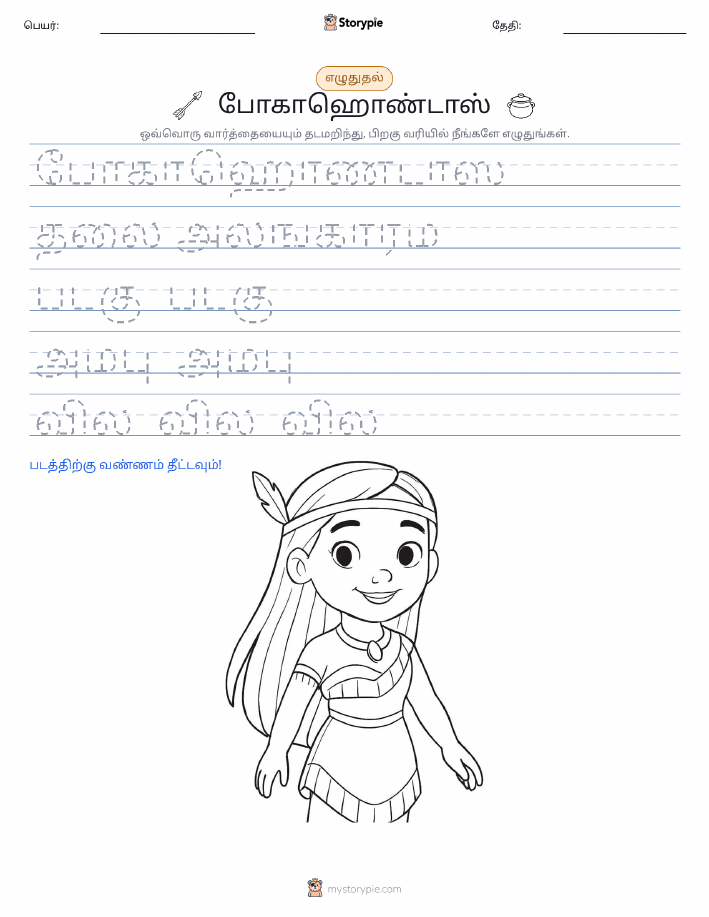 பெயர்:
Storypie
தேதி:
எழுதுதல்
போகாஹொண்டாஸ்
ஒவ்வொரு வார்த்தையையும் தடமறிந்து, பிறகு வரியில் நீங்களே எழுதுங்கள்.
போகாஹொண்டாஸ்
தலை அலங்காரம்
படகு படகு
அம்பு அம்பு
வில் வில் வில்
படத்திற்கு வண்ணம் தீட்டவும்!
mystorypie.com